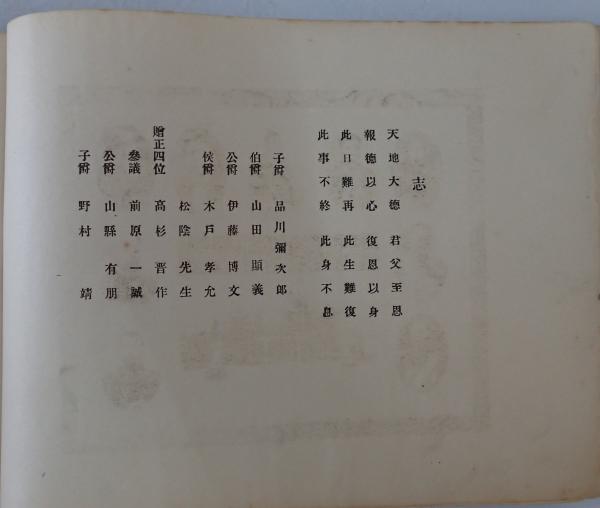 志
天地大德　君父至恩
報德以心　復恩以身
此日難再　此生難復
此事不終　此身不息
子爵　品川彌次郎
伯爵　山田顯義
公爵　伊藤博文
侯爵　木戸孝允
松陰先生
贈正四位　高杉晋作
參議　前原一誠
公爵　山縣有朋
子爵　野村靖